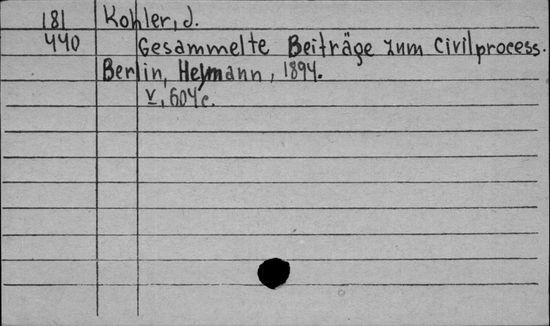 181 Kohler, J.
440 Gesammelte Beiträge zum Civilprocess.
Berlin, Heymann, 1894.
V, 604 c.